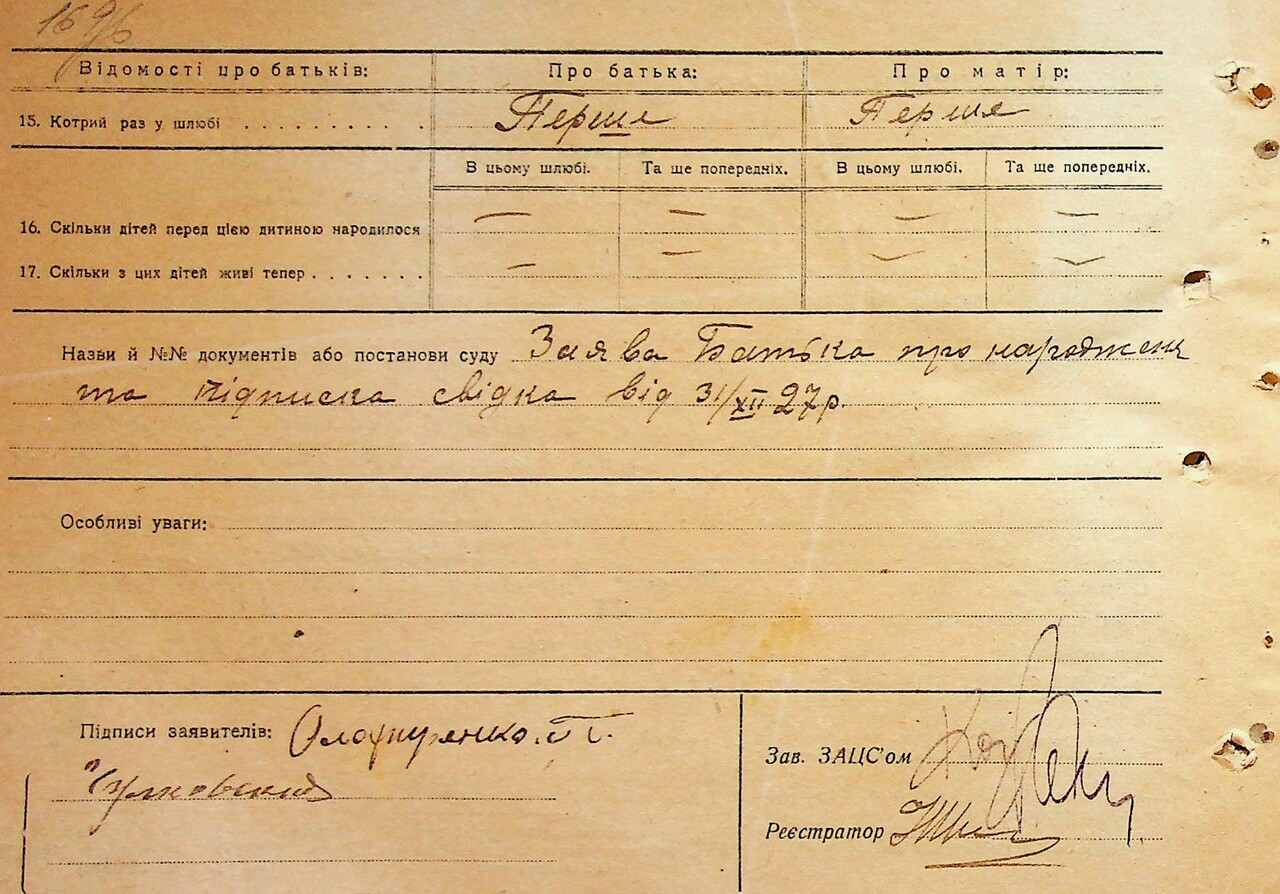 Відомості про батьків: Про батька: Про матір:
15. Котрий раз у шлюбі . . . . . . . . . . Перше Перше
В цьому шлюбі. Та ще попередніх. В цьому шлюбі. Та ще попередніх.
16. Скільки дітей перед цією дитиною народилося — — — —
17. Скільки з цих дітей живі тепер . . . . . . . — — — —
Назви й №№ документів або постанови суду Заява Батька про народження
та підписка свідка від 31/XII 27р.
Особливі уваги:
Підписи заявителів:
Зав. ЗАЦС'ом
Реєстратор